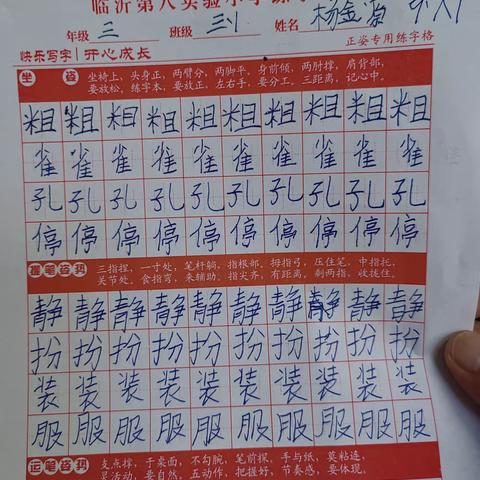 临沂第八实验小学
年级 三 班级 三1 姓名 杨金
正姿专用练字格
快乐写字 开心成长
坐姿 坐椅上，头身正，两臂分，两脚平。身前倾，两肘撑，肩背部，
要放松，练字本，要放正，左右手，要分工，三距离，记心中。
粗 粗 粗 粗 粗 粗 粗 粗 粗 粗
雀 雀 雀 雀 雀 雀 雀 雀 雀 雀
孔 孔 孔 孔 孔 孔 孔 孔 孔 孔
停 停 停 停 停 停 停 停 停 停
握笔姿势 三指捏，一寸处，笔杆躺，指根部。拇指弓，压住笔，中指托，
关节处。食指弯，来辅助。指尖齐，有距离，剩两指，收拢住。
静 静 静 静 静 静 静 静 静 静
扮 扮 扮 扮 扮 扮 扮 扮 扮 扮
装 装 装 装 装 装 装 装 装 装
服 服 服 服 服 服 服 服 服 服
运笔姿势 支点撑，于桌面，不勾腕，笔前探，手与纸，莫粘连，
灵活动，要自然，五动作，把握好，节奏感，要体现。